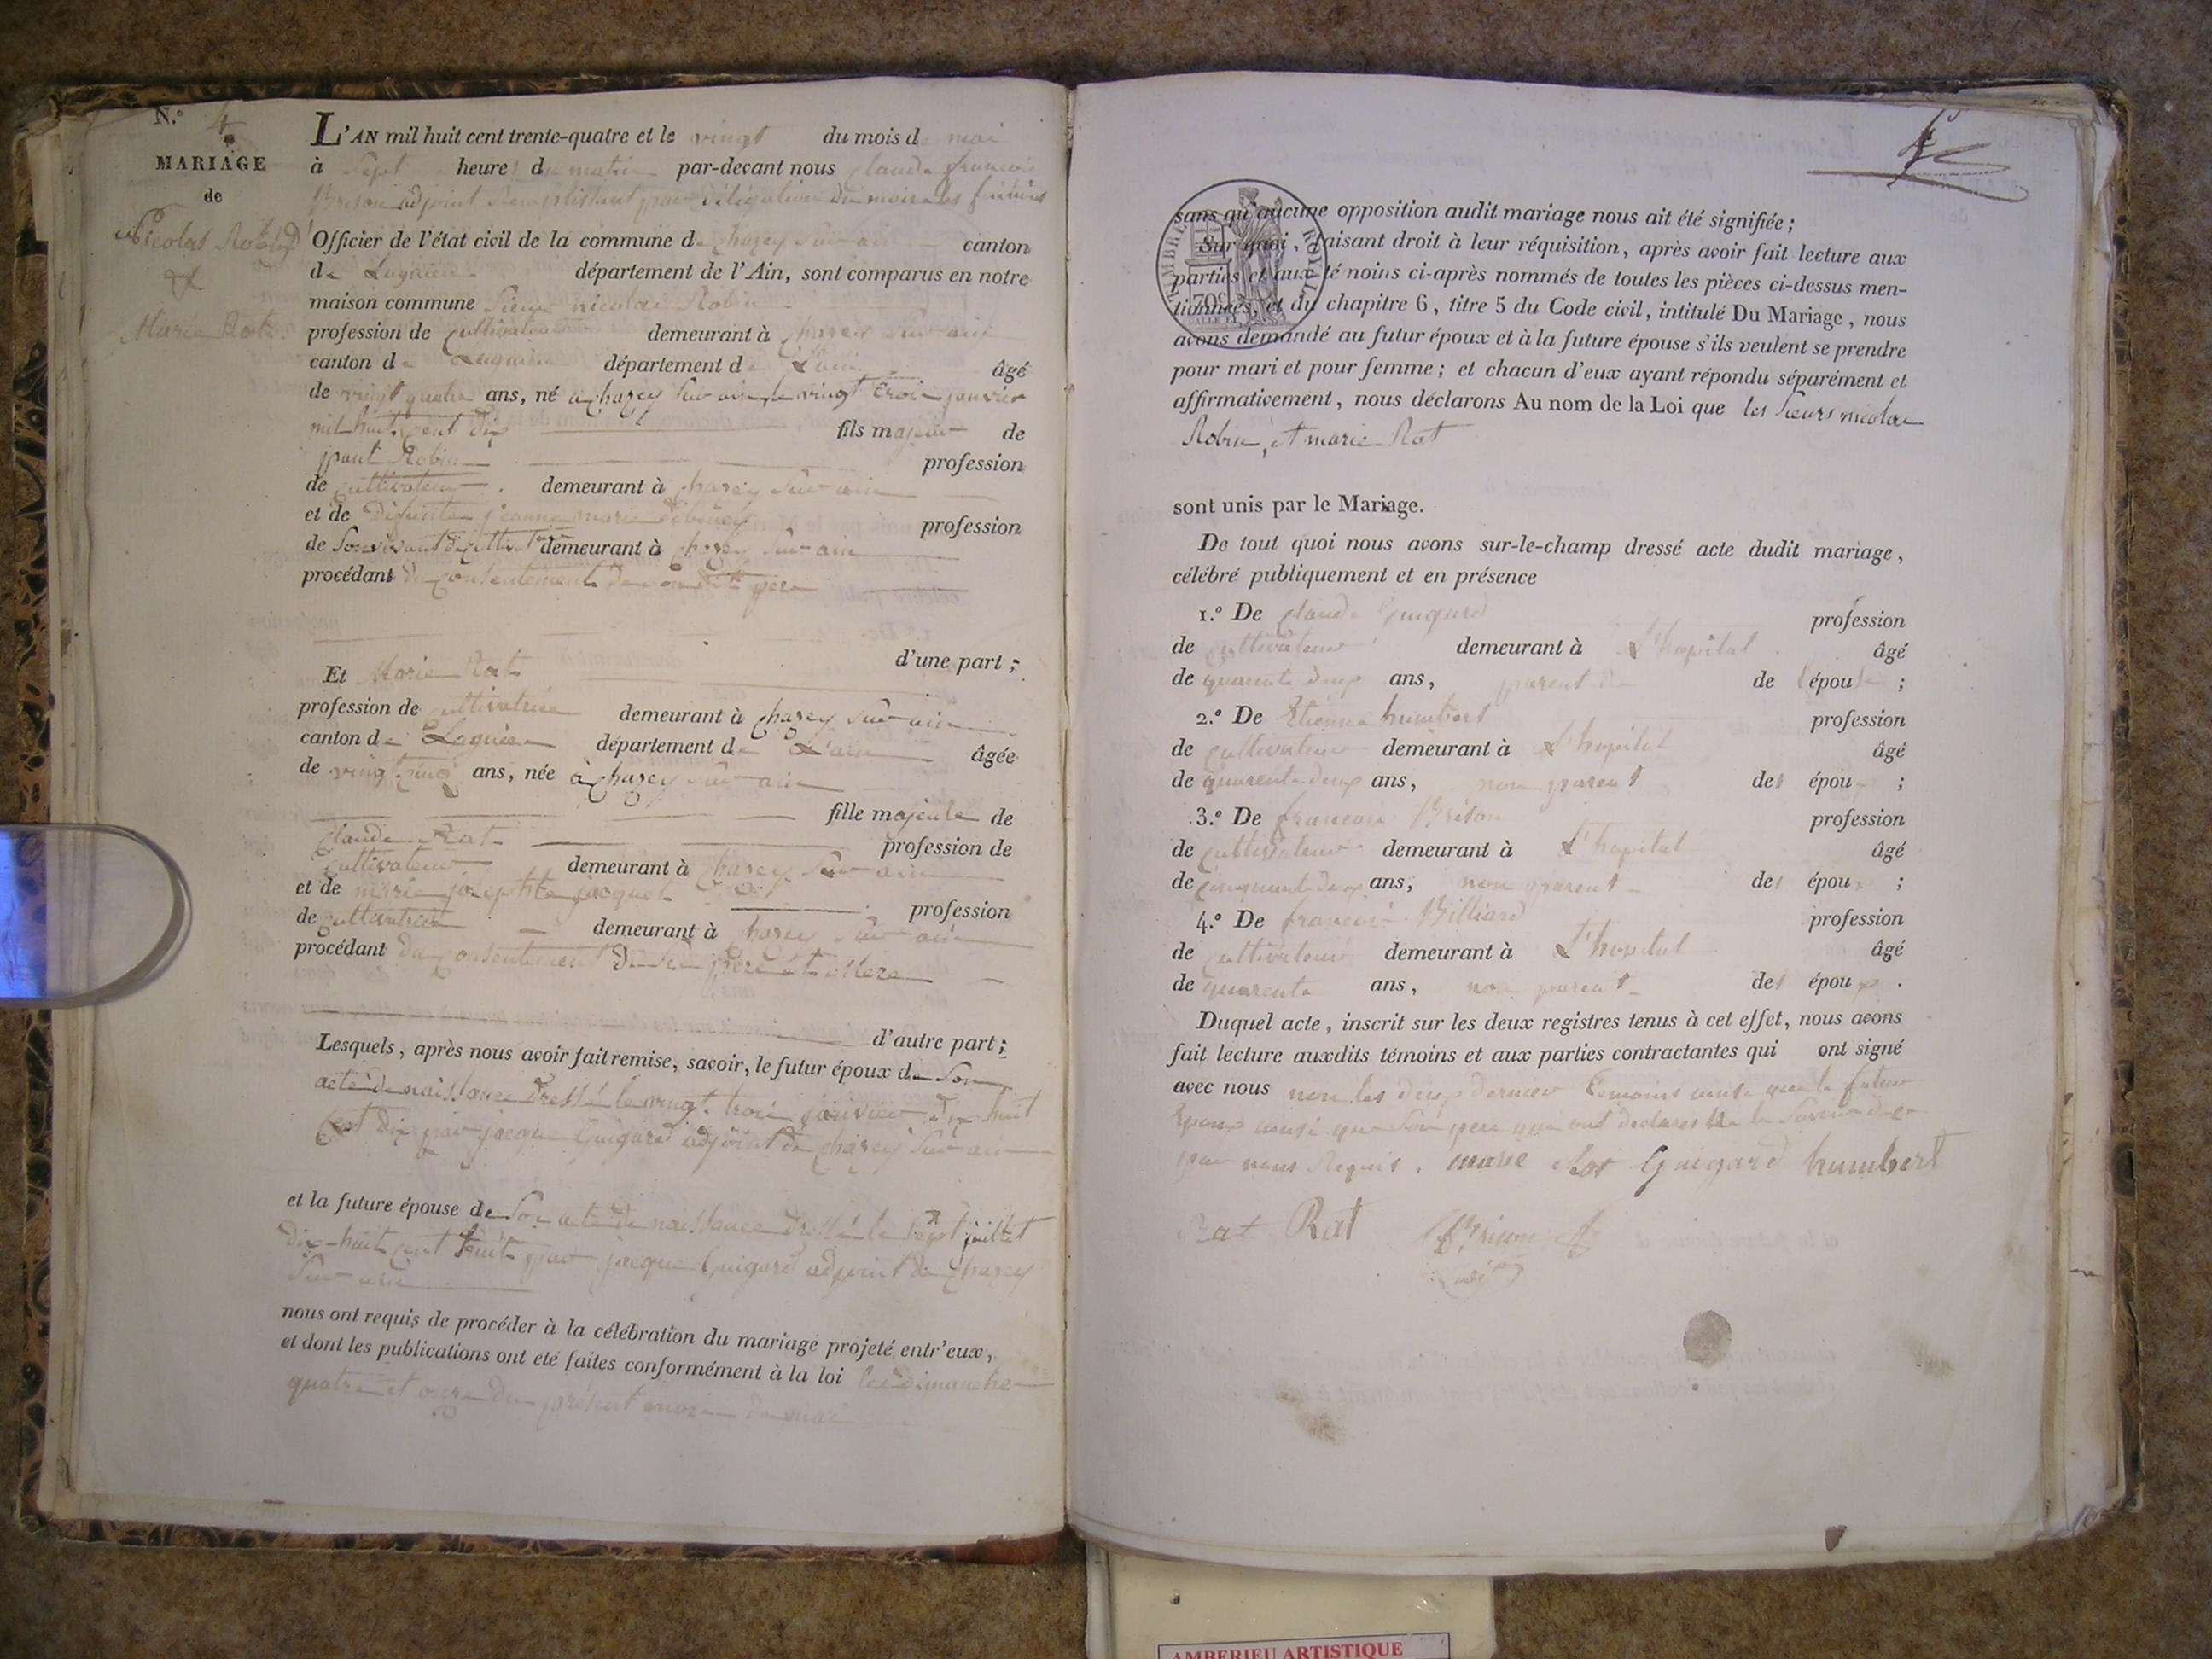 N.º 4
MARIAGE
de
Nicolas Robin
&
Marie Rat
L'AN mil huit cent trente-quatre et le vingt du mois de mai
à Sept heures du matin par-devant nous claude francois
Brison adjoint remplissant par délégation du maire les fonctions
Officier de l'état civil de la commune de chazey sur ain canton
de Lagnieu département de l'Ain, sont comparus en notre
maison commune Sieur nicolas Robin
profession de cultivateur demeurant à chazey sur ain
canton de Lagnieu département de L'ain âgé
de vingt quatre ans, né a chazey sur ain le vingt trois janvier
mil huit cent dix fils majeur de
Robin profession
de cultivateur demeurant à chazey sur ain
et de Défunte jeanne marie profession
de Son vivant demeurant à chazey sur ain
procédant du consentement de son dit pere
d'une part ;
Et Marie Rat
profession de cultivatrice demeurant à chazey sur ain
canton de Lagnieu département de L'ain âgée
de vingt cinq ans, née à chazey sur ain
fille majeure de
Claude Rat profession de
cultivateur demeurant à chazey sur ain
et de marie josephte jacquet profession
de cultivatrice demeurant à chazey sur ain
procédant du consentement de ses pere et Mere
d'autre part ;
Lesquels, après nous avoir fait remise, savoir, le futur époux de Son
acte de naissance dressé le vingt trois janvier dix huit
cent dix par jacque Guigard adjoint de chazey sur ain
et la future épouse de Son acte de naissance dressé le Sept juillet
dix-huit cent huit par jacque Guigard adjoint de chazey
Sur ain
nous ont requis de procéder à la célébration du mariage projeté entr'eux,
et dont les publications ont été faites conformément à la loi les dimanche
quatre et onze du présent mois de mai
sans qu'aucune opposition audit mariage nous ait été signifiée ;
Sur quoi, faisant droit à leur réquisition, après avoir fait lecture aux
parties et aux témoins ci-après nommés de toutes les pièces ci-dessus men-
tionnées, et du chapitre 6, titre 5 du Code civil, intitulé Du Mariage, nous
avons demandé au futur époux et à la future épouse s'ils veulent se prendre
pour mari et pour femme ; et chacun d'eux ayant répondu séparément et
affirmativement, nous déclarons Au nom de la Loi que les Sieurs nicolas
Robin, et marie Rat
sont unis par le Mariage.
De tout quoi nous avons sur-le-champ dressé acte dudit mariage,
célébré publiquement et en présence
1.º De claude Guigard profession
de cultivateur demeurant à L'hopital âgé
de quarente deux ans, parent de l'épouse ;
2.º De Etienne humbert profession
de cultivateur demeurant à L'hopital âgé
de quarente deux ans, non parent des époux ;
3.º De francois Brison profession
de cultivateur demeurant à L'hopital âgé
de cinquante deux ans, non parent des époux ;
4.º De francois Billiard profession
de cultivateur demeurant à L'hopital âgé
de quarente ans, non parent des époux .
Duquel acte, inscrit sur les deux registres tenus à cet effet, nous avons
fait lecture auxdits témoins et aux parties contractantes qui ont signé
avec nous non les deux dernier temoins ainsi que le futur
Epoux ainsi que Son pere qui ont declares ne le Savoir de ce
par nous Requis. marie Rat Guigard humbert
Rat Rat Brison
TIMBRE ROYAL
AMBERIEU ARTISTIQUE